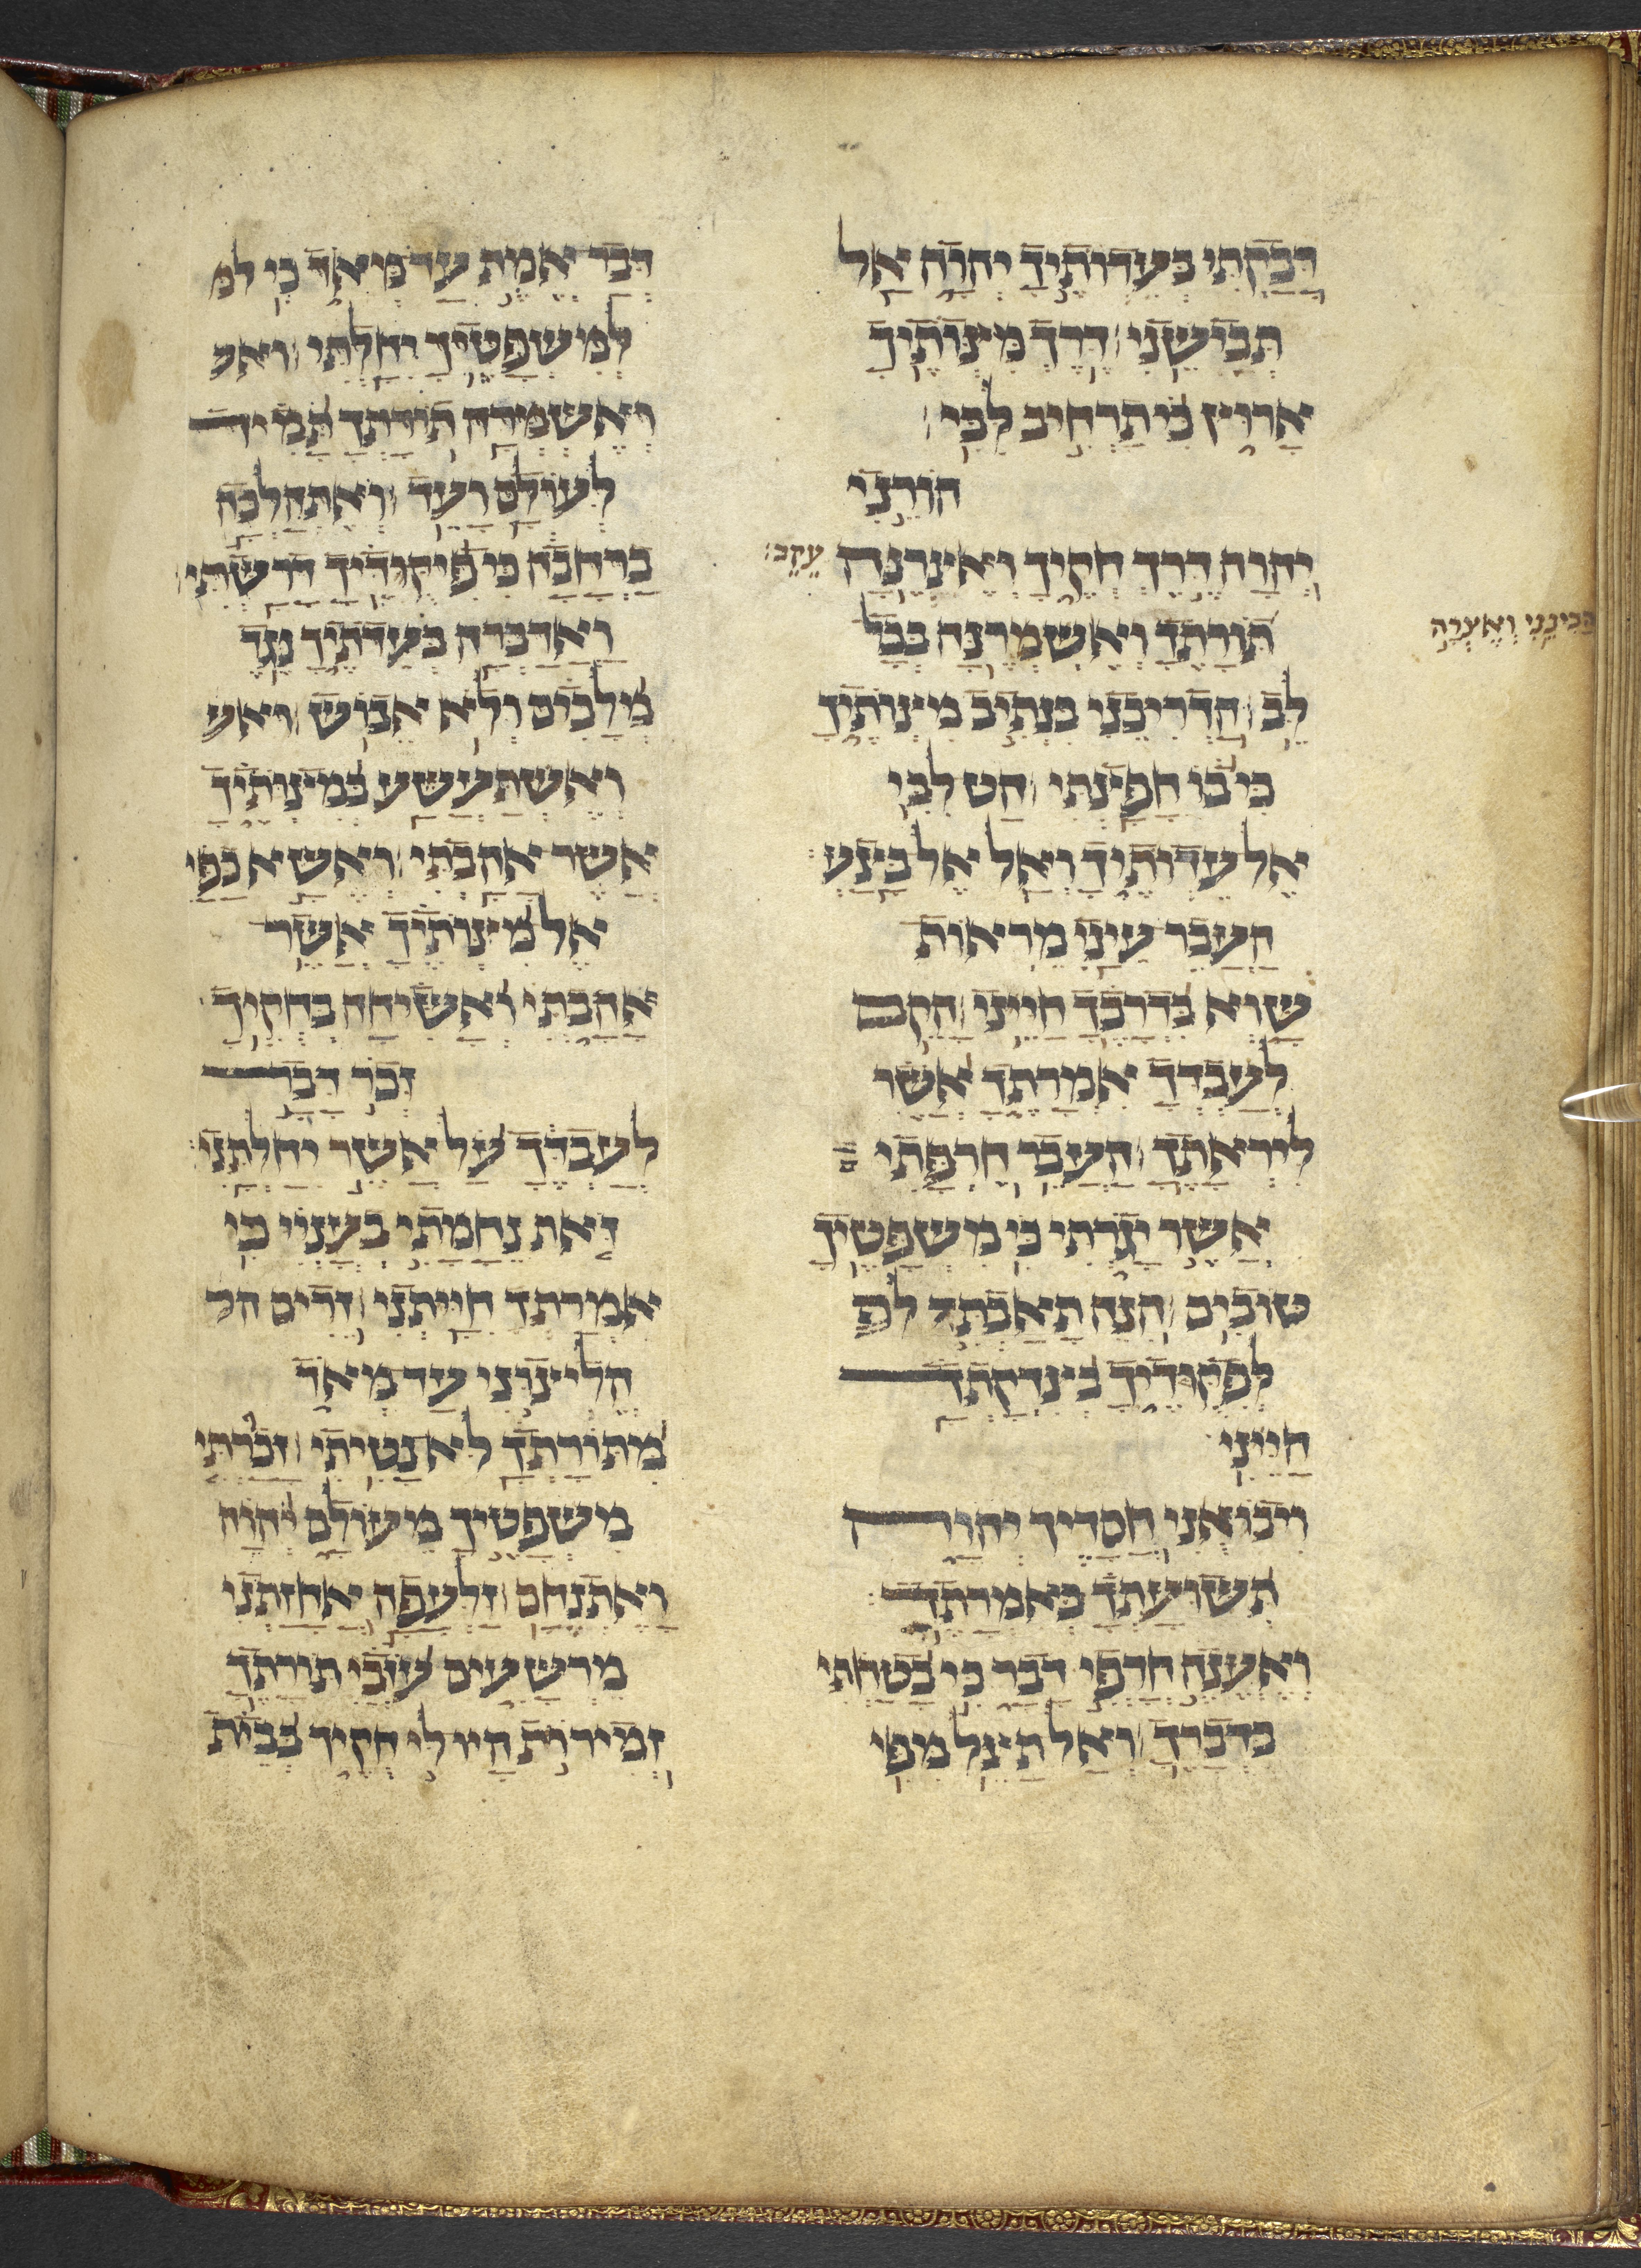 דָּבַקְתִּי בְעֵדְוֺתֶיךָ יְהוָה אַל
תְּבִישֵׁנִי דֶּרֶךְ מִצְוֺתֶיךָ
אָרוּץ כִּי תַרְחִיב לִבִּי
הוֹרֵנִי
יְהוָה דֶּרֶךְ חֻקֶּיךָ וְאֶצְּרֶנָּה עֵקֶב׃
הֲבִינֵנִי וְאֶצְּרָה
תוֹרָתֶךָ וְאֶשְׁמְרֶנָּה בְכָל
לֵב הַדְרִיכֵנִי בִּנְתִיב מִצְוֺתֶיךָ
כִּי בוֹ חָפָצְתִּי הַט לִבִּי
אֶל עֵדְוֺתֶיךָ וְאַל אֶל בָּצַע׃
הַעֲבֵר עֵינַי מֵרְאוֹת
שָׁוְא בִּדְרָכֶךָ חַיֵּינִי הָקֵם
לְעַבְדְּךָ אִמְרָתֶךָ אֲשֶׁר
לְיִרְאָתֶךָ הַעֲבֵר חֶרְפָּתִי
אֲשֶׁר יָגֹרְתִּי כִּי מִשְׁפָּטֶיךָ
טוֹבִים הִנֵּה תָּאַבְתִּי לפ
לְפִקּוּדֶיךָ בְּצִדְקָתְךָ
חַיֵּינִי
וִיבֹאוּנִי חֲסָדֶיךָ יְהוָה
תְּשׁוּעָתְךָ כְּאִמְרָתֶךָ׃
וְאֶעֱנֶה חֹרְפִי דָבָר כִּי בָטַחְתִּי
בִּדְבָרֶךָ וְאַל תַּצֵּל מִפִּי
דְבַר אֱמֶת עַד מְאֹד כִּי למ
לְמִשְׁפָּטֶיךָ יִחָלְתִּי ואש
וְאֶשְׁמְרָה תוֹרָתְךָ תָמִיד
לְעוֹלָם וָעֶד וְאֶתְהַלְּכָה
בָרְחָבָה כִּי פִקּוּדֶיךָ דָרָשְׁתִּי
וַאֲדַבְּרָה בְעֵדֹתֶיךָ נֶגֶד
מְלָכִים וְלֹא אֵבוֹשׁ ואש
וְאֶשְׁתַּעֲשַׁע בְּמִצְוֺתֶיךָ
אֲשֶׁר אָהָבְתִּי וְאֶשָּׂא כַפַּי
אֶל מִצְוֺתֶיךָ אֲשֶׁר
אָהָבְתִּי וְאָשִׂיחָה בְחֻקֶּיךָ
זְכֹר דָּבָר
לְעַבְדֶּךָ עַל אֲשֶׁר יִחַלְתָּנִי׃
זֹאת נֶחָמָתִי בְעָנְיִי כִּי
אִמְרָתְךָ חִיָּתְנִי זֵדִים הל
הֱלִיצֻנִי עַד מְאֹד
מִתּוֹרָתְךָ לֹא נָטִיתִי זָכַרְתִּי
מִשְׁפָּטֶיךָ מֵעוֹלָם יְהוָה
וָאֶתְנֶחָם זַלְעָפָה אֲחָזַתְנִי
מֵרְשָׁעִים עֹזְבֵי תּוֹרָתֶךָ
זְמִרוֹת הָיוּ לִי חֻקֶּיךָ בְּבֵית